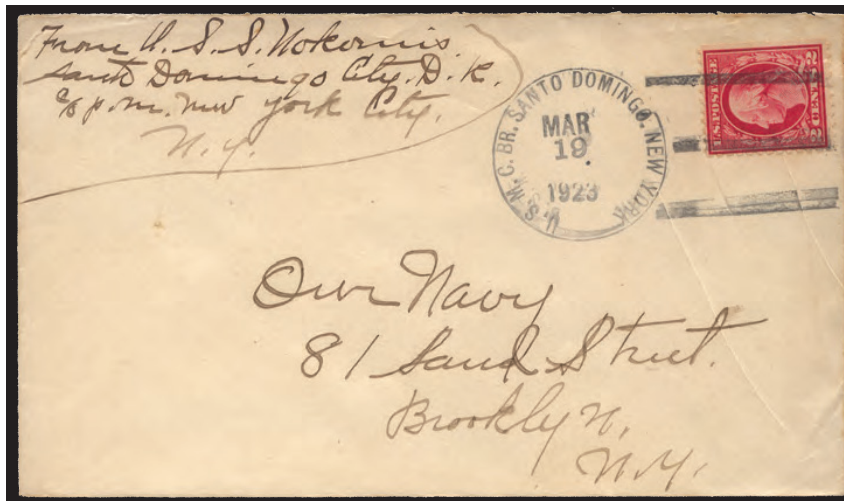 From U.S.S. Nokomis.
Santo Domingo City. D.R.
c/o p.m. New York City.
N.Y.
U.S.M.C. BR. SANTO DOMINGO. NEW YORK
MAR
19
1923
U.S. POSTAGE
2 CENTS 2
Our Navy
81 Sand Street.
Brooklyn,
N.Y.